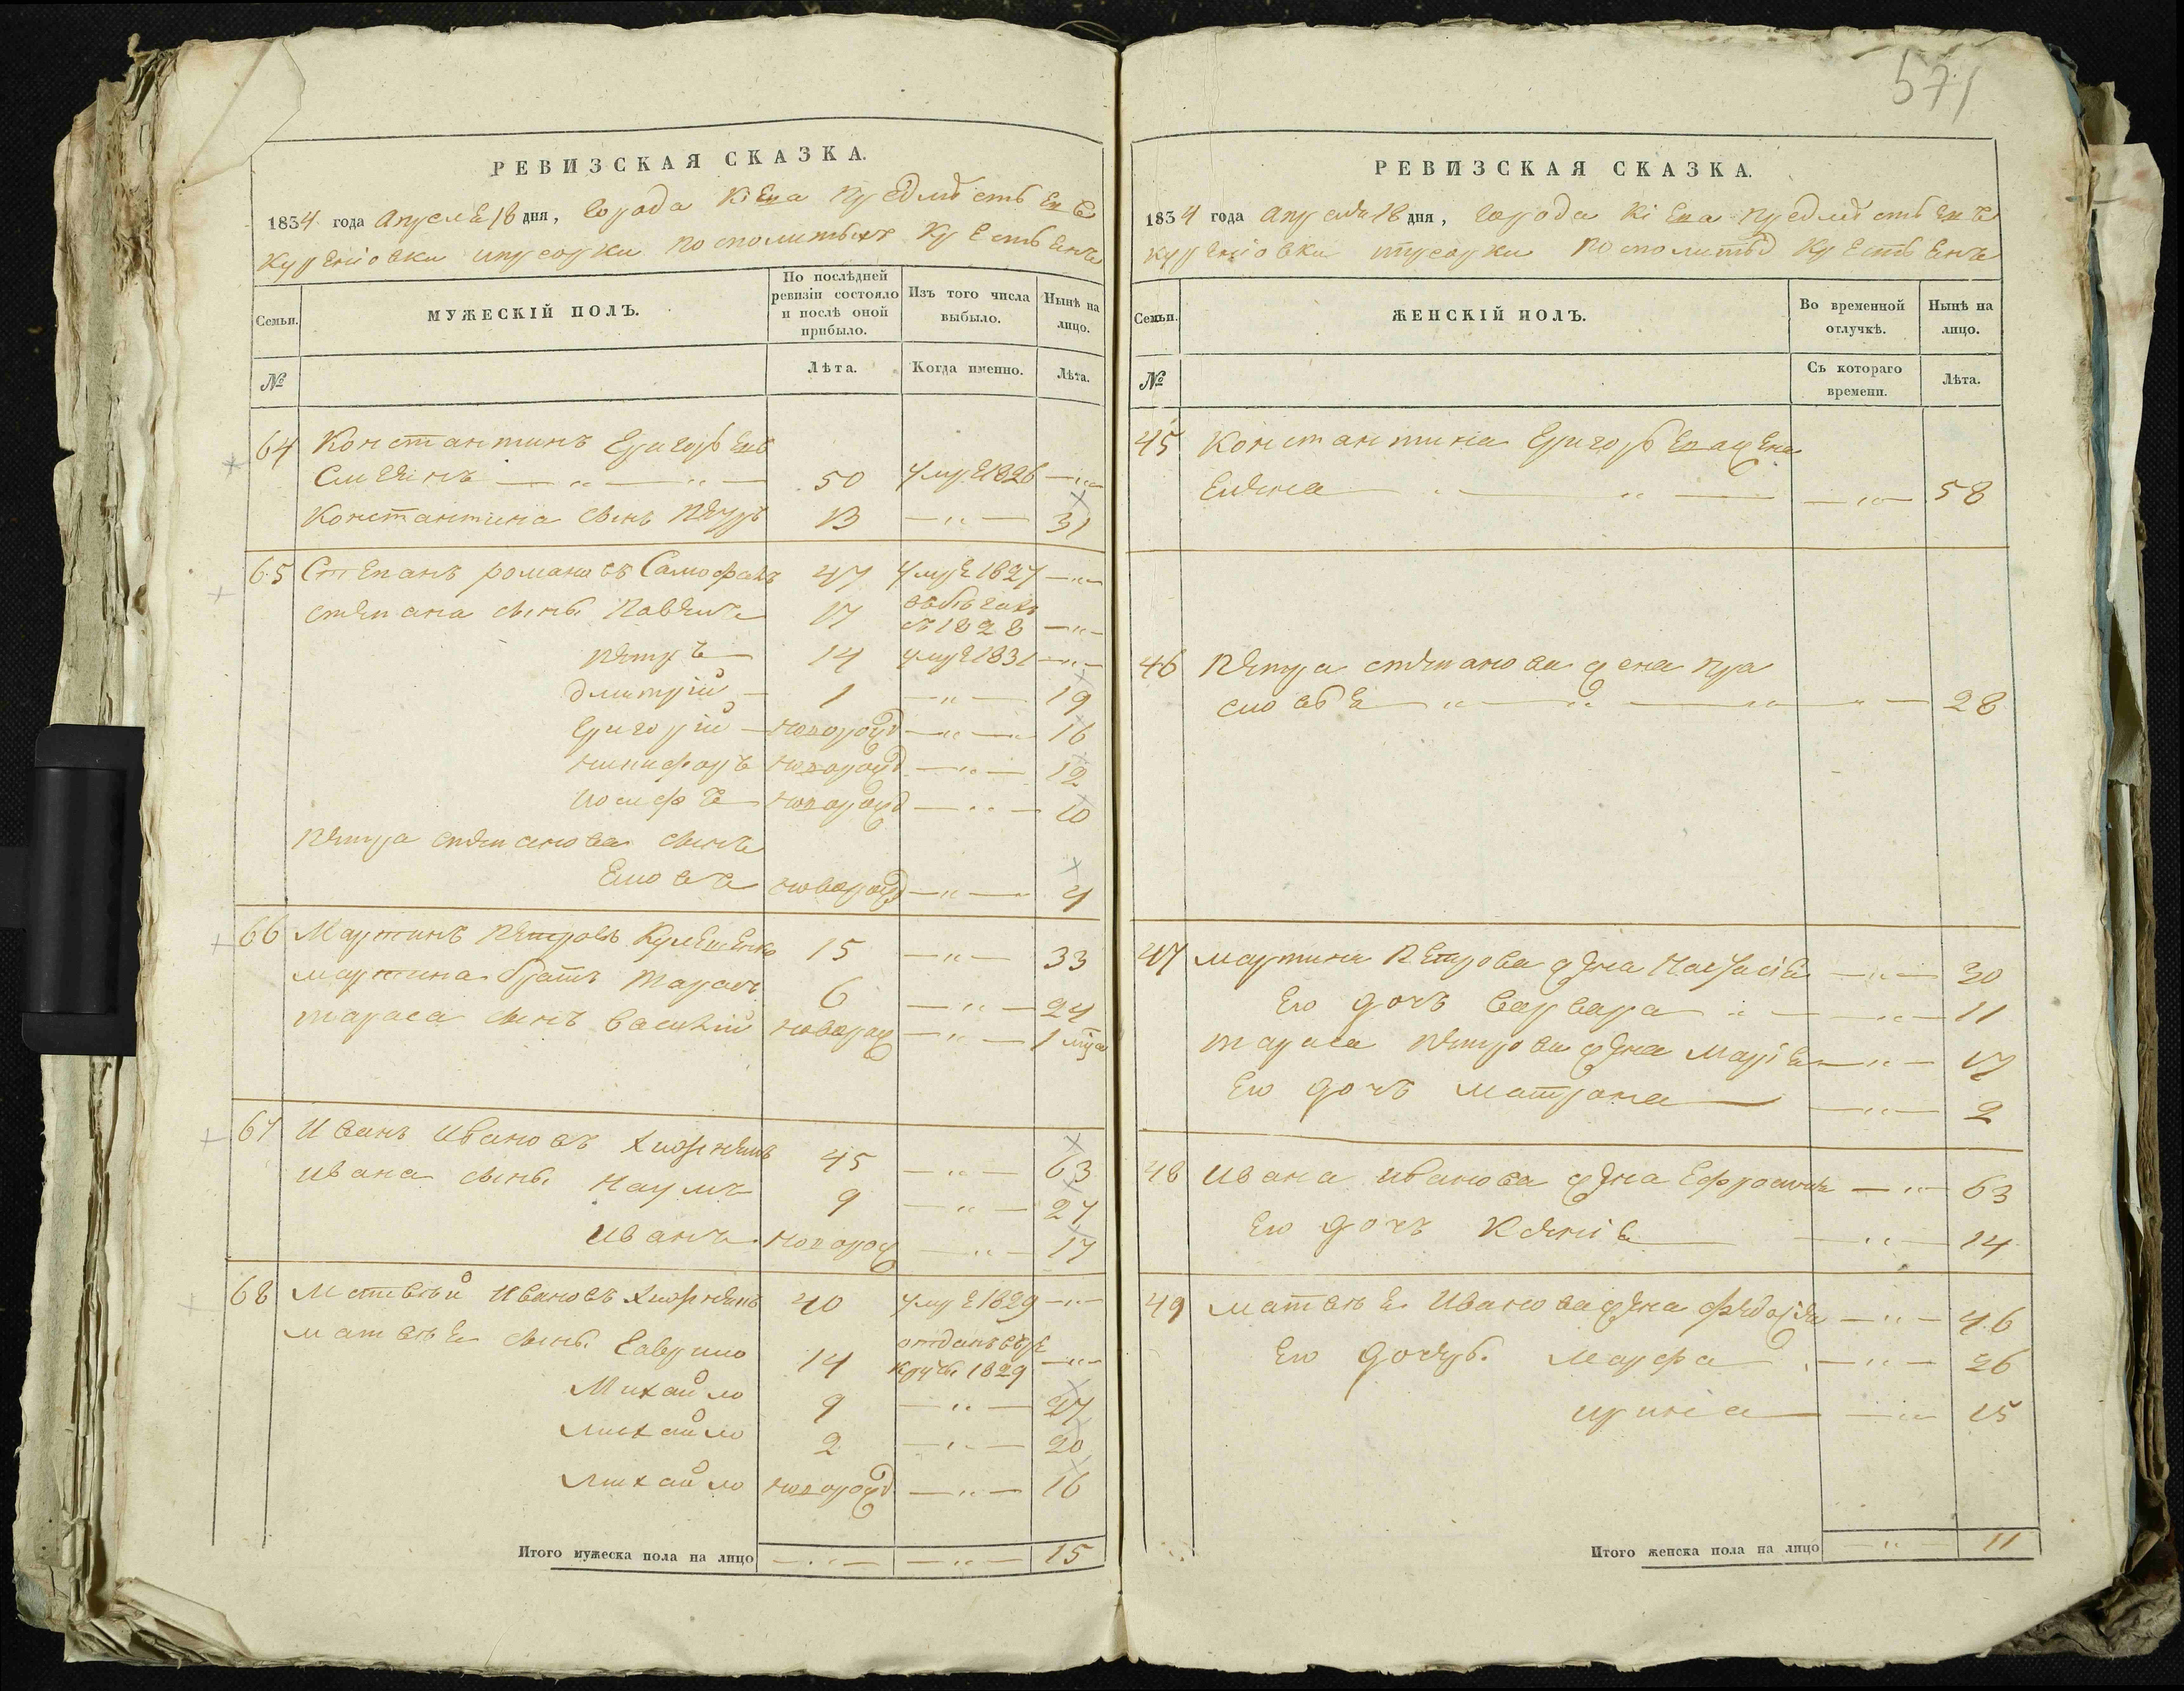 571
РЕВИЗСКАЯ СКАЗКА.
1834 года Апреля 18 дня, города Кіева предместьевъ
Куренiовки и Присорки посполитыхъ крестьянъ
Семьи.
МУЖЕСКІЙ ПОЛЪ.
По послѣдней ревизіи состояло и послѣ оной прибыло.
Изъ того числа выбыло.
Нынѣ на лицо.
№
Лѣта.
Когда именно.
Лѣта.
64 Константинъ Григорьевъ
50 умре 1826 —„—
Константина сынъ Петръ 13 —„— 31
65 Степанъ Романовъ 47 умре 1827 —„—
Степана сынъ. Павелъ 17 въ бегахъ съ 1828 —„—
Петръ 14 умре 1831 —„—
Дмитрій 1 —„— 19
Григорій новорожд —„— 16
Никифоръ новорожд —„— 12
Иосифъ новорожд —„— 10
Петра Степанова сынъ
новорожд —„— 4
66 Мартинъ Петровъ Кулешенко 15 —„— 33
Мартина братъ Тарасъ 6 —„— 24
Тараса сынъ Василій новорож —„— 1 мца
67 Иванъ Ивановъ 45 —„— 63
Ивана сынъ. Наумъ 9 —„— 27
Иванъ новорож —„— 17
68 Матвѣй Ивановъ 40 умре 1829 —„—
Матвѣя сынъ. Гаврило 14 отданъ въ рекруты 1829 —„—
Михайло 9 —„— 27
Михайло 2 —„— 20
Михайло новорожд —„— 16
Итого мужеска пола на лицо —„— —„— 15
РЕВИЗСКАЯ СКАЗКА.
1834 года Апреля 18 дня, города Кіева предместьевъ
Куренiовки и Присорки посполитыхъ крестьянъ
Семьи.
ЖЕНСКІЙ ПОЛЪ.
Во временной отлучкѣ.
Нынѣ на лицо.
№
Съ котораго времени.
Лѣта.
45 Константина Григорьева жена
Елена —„— 58
46 Петра Степанова жена Пра
сковья —„— 28
47 Мартина Петрова жена Настасія —„— 30
Его дочь Варвара —„— 11
Тараса Петрова жена Марія —„— 17
Его дочь Матрона —„— 2
48 Ивана Иванова жена Ефросинія —„— 63
Его дочь Ксенія —„— 14
49 Матвѣя Иванова жена Федосія —„— 46
Его дочери. Марфа —„— 26
Ирина —„— 15
Итого женска пола на лицо —„— 11